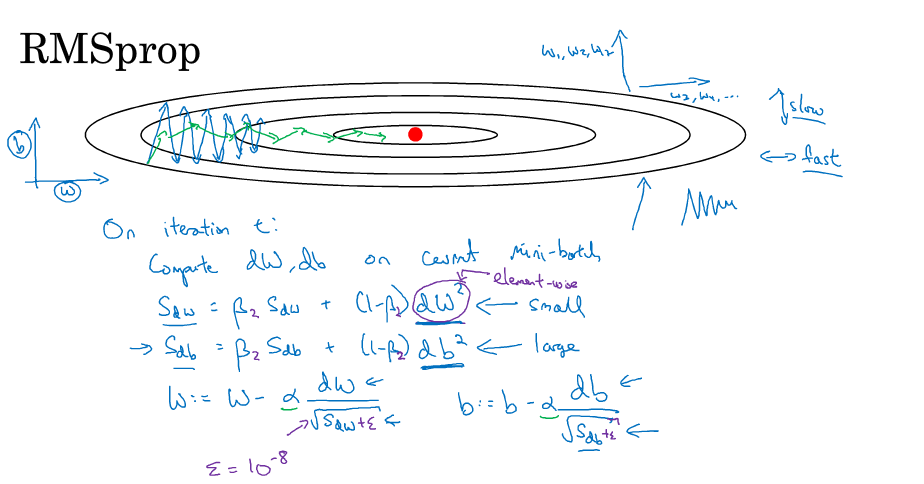 RMSprop
w₁, w₂, w₂
w₃, w₄, ...
slow
fast
b
w
On iteration t:
Compute dW, db on current mini-batch
element-wise
S_dw = β₂ S_dw + (1-β₂) dW² ← small
→ S_db = β₂ S_db + (1-β₂) db² ← large
W := W - α dW / √(S_dw + ε) ←
b := b - α db / √(S_db + ε) ←
ε = 10⁻⁸